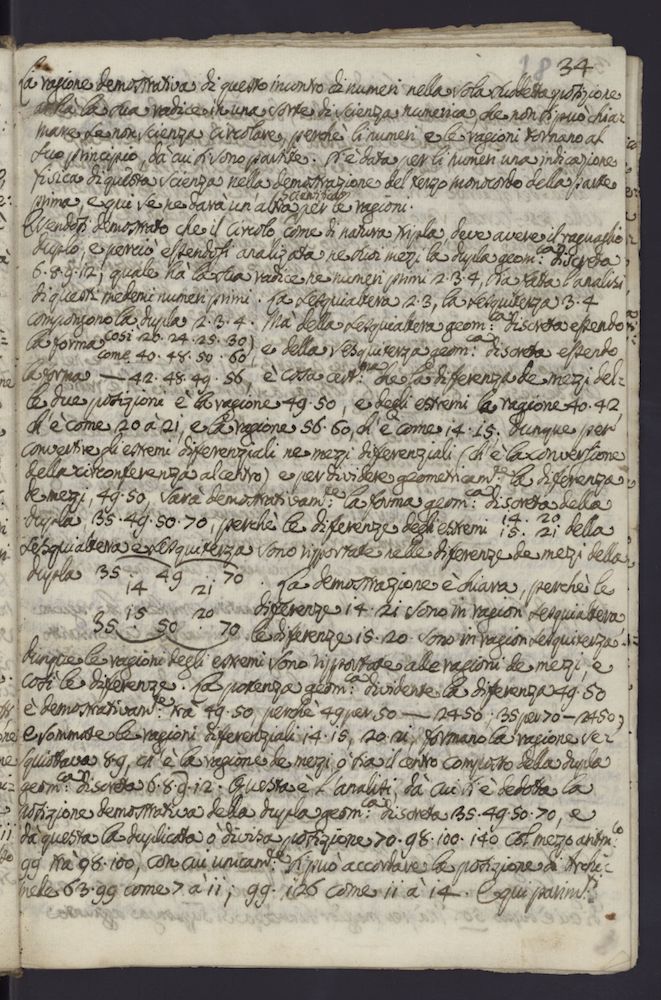 18 34
La ragione demostrativa di questo incontro di numeri nella sola suddetta posizione
hà la sua radice in una sorte di scienza numerica, che non si può chia=
mare se non scienza circolare, perche li numeri e le ragioni tornano al
suo principio, da cui si sono partite. Si è data per li numeri una indicazione
fisica di questa scienza nella demostrazione del terzo monocordo della parte
prima, e qui se ne darà un'altra scientifica per le ragioni.
Essendosi demostrato che il circolo come di natura dupla deve avere il ragguaglio
duplo, e perciò essendosi analizata ne suoi mezi la dupla geom:ca discreta
6.8.9.12, quale hà la sua radice ne numeri primi 2.3.4, si fa l'analisi
di questi medemi numeri primi. La sesquialtera 2.3, la sesquiterza 3.4
compongono la dupla 2.3.4. Mà della sesquialtera geom:ca discreta essendo
la forma così 20.24.25.30)
come 40.48.50.60) e della sesquiterza geom:ca discreta essendo
la forma — 42.48.49.56, è cosa cert:ma che la differenza de mezi del=
le due posizioni è la ragione 49.50, e degli estremi la ragione 40.42
ch'è come 20 à 21, e la ragione 56.60, ch'è come 14.15. Dunque per
convertire gli estremi diferenziali ne mezi diferenziali (ch'è la conversione
della circonferenza al centro) e per dividere geometricam:te la diferenza
de mezi, 49.50, sarà demostrativam:te la forma geom:ca discreta della
dupla 35.49.50.70, perchè le diferenze degli estremi 14.20
15.21 della
sesquialtera e sesquiterza sono riportate nelle diferenze de mezi della
dupla 35. 49. 70 . La demostrazione è chiara, perchè le
14 21
diferenze 14.21 sono in ragion sesquialtera
15 20
35 50 70 le diferenze 15.20 sono in ragion sesquiterza.
Dunque le ragioni degli estremi sono riportate alle ragioni de mezi, e
così le diferenze. La potenza geom:ca dividente la diferenza 49.50
è demostrativam:te trà 49.50 perchè 49 per 50 — 2450; 35 per 70 — 2450;
e sommate le ragioni diferenziali 14.15, 20.21, formano la ragione ses=
quiottava 8.9, ch'è la ragione de mezi, ò sia il centro composto della dupla
geom:ca discreta 6.8.9.12. Questa e l'analisi, da cui si è dedotta la
posizione demostrativa della dupla geom:ca discreta 35.49.50.70, e
da questa la duplicata ò divisa posizione 70.98.100.140 col mezo aritm:co
99 trà 98.100, con cui unicam:te si può accordare la posizione di Archi=
mede 63.99 come 7 à 11; 99.126 come 11 à 14. E qui parim:ti